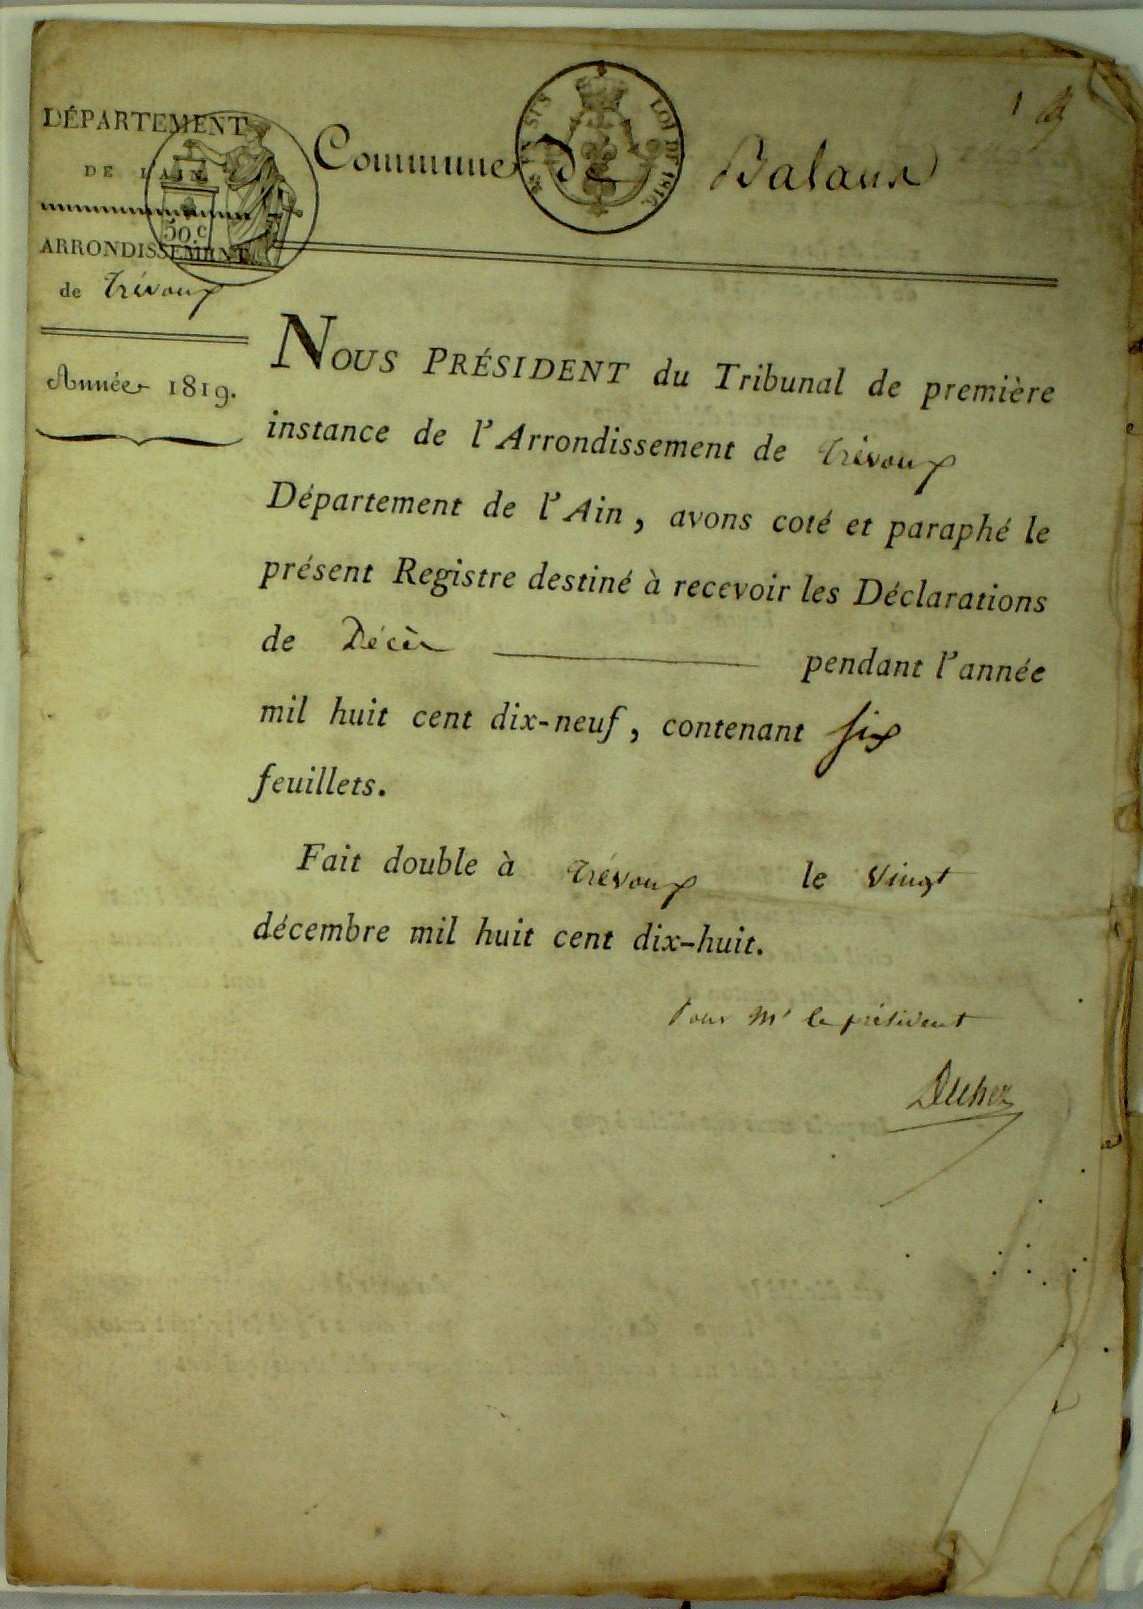 DÉPARTEMENT
DE L'AIN
50.c
ARRONDISSEMENT
de Trévoux
Année 1819.
Commune de Balan
LOI DE 1816
1
NOUS PRÉSIDENT du Tribunal de première
instance de l'Arrondissement de Trévoux
Département de l'Ain, avons coté et paraphé le
présent Registre destiné à recevoir les Déclarations
de Décès pendant l'année
mil huit cent dix-neuf, contenant six
feuillets.
Fait double à Trévoux le vingt
décembre mil huit cent dix-huit.
Pour Mr le président